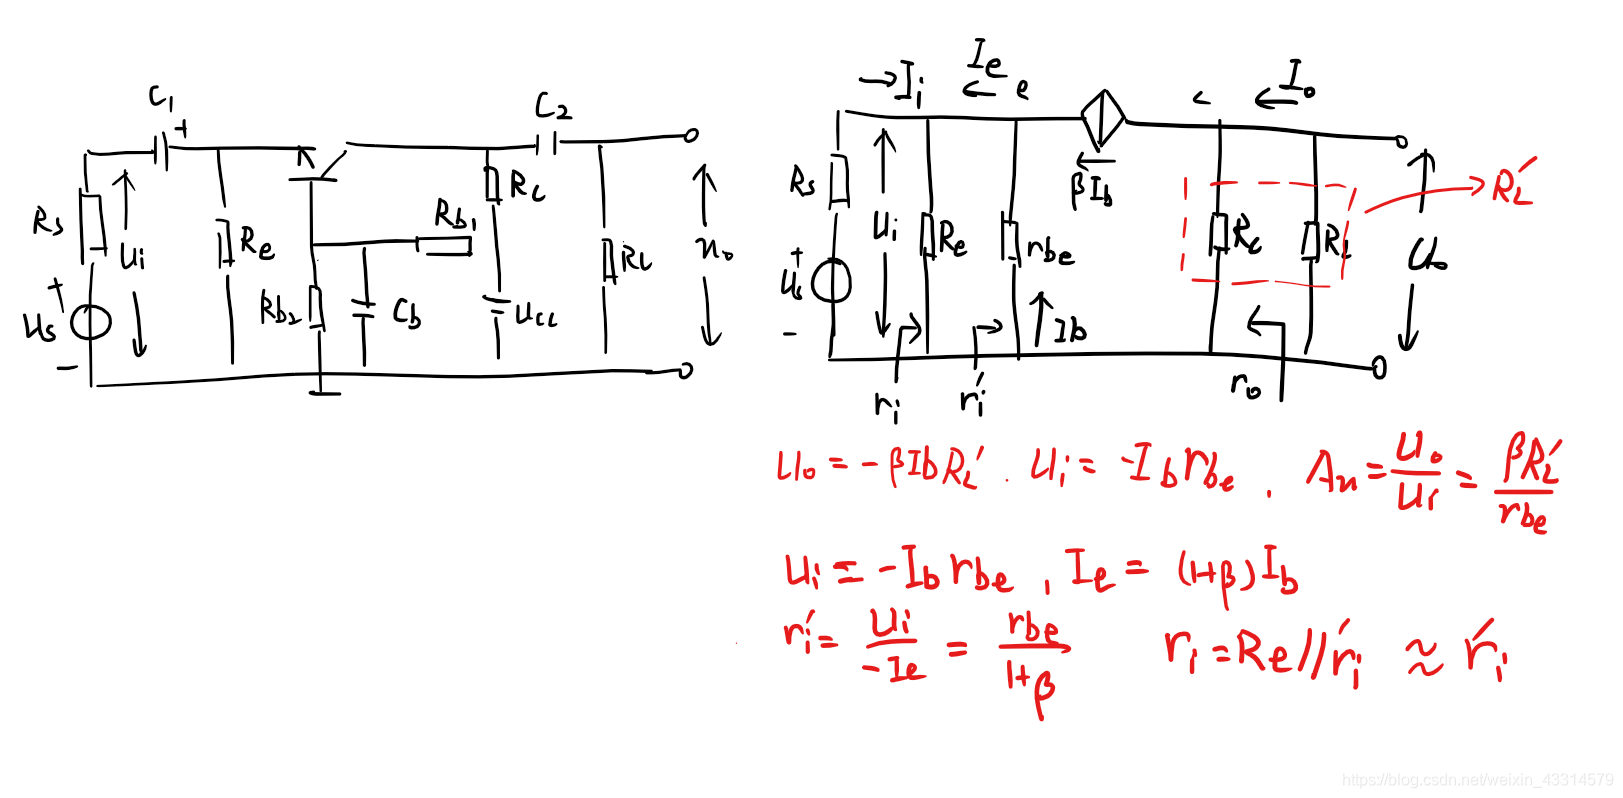 C₁ + C₂
Rs Ui Re Rb₁ Rc
Us + - Rb₂ Cb Ucc RL u₀
→ Iᵢ Ie ← e βIb c I₀ ←
Rs Ui Re rbe Rc RL RL′ U₀
Us + - Ib
rᵢ rᵢ′ r₀
U₀ = -βIbRL′ . Ui = -Ibrbe , Au = U₀/Ui = βRL′/rbe
Ui = -Ibrbe , Ie = (1+β)Ib
rᵢ′ = Ui/-Ie = rbe/1+β rᵢ = Re//rᵢ′ ≈ rᵢ′
https://blog.csdn.net/weixin_43314579